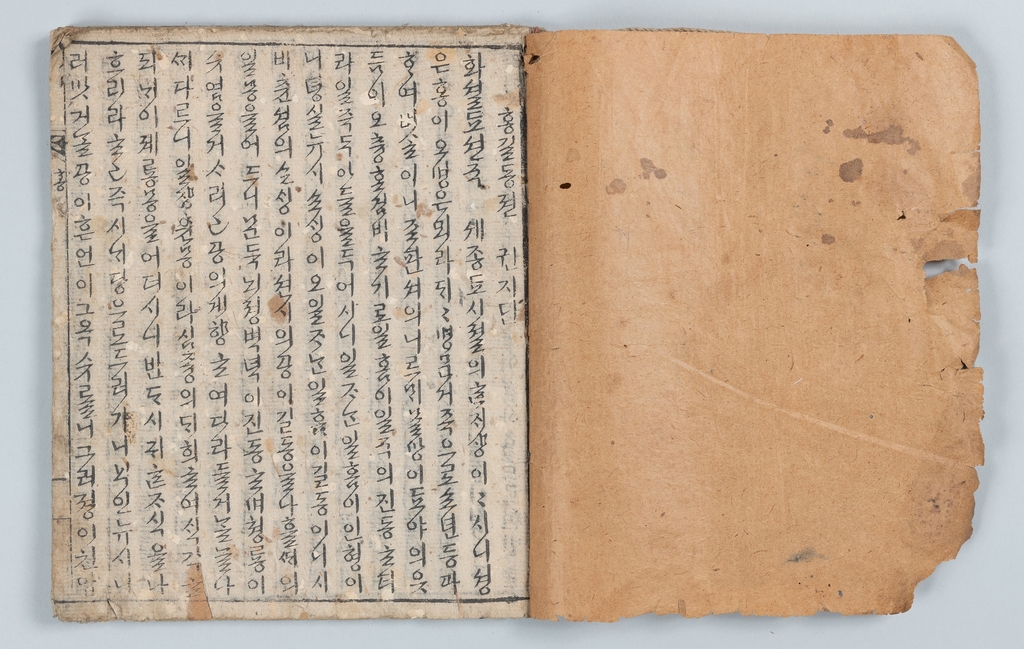 홍길동젼 권지단
화셜됴션국셰종됴시졀의ᄒᆞᆫᄌᆡ상이〻시니셩
은홍이오명은뫼라ᄃᆡ〻명문거족으로쇼년등과
ᄒᆞ여벼ᄉᆞᆯ이니조판셔의니르ᄆᆡ물망이됴야의읏
듬이오츙효겸비ᄒᆞ기로일홈이일국의진동ᄒᆞ더
라일즉두아들을두어시니일ᄌᆞᄂᆞᆫ일홈이인형이
니뎡실뉴시소ᄉᆡᆼ이오일ᄌᆞᄂᆞᆫ일홈이길동이니시
비츈셤의소ᄉᆡᆼ이라션시의공이길동을나흘ᄯᆡ의
일몽을어드니문득뇌졍벽녁이진동ᄒᆞ며쳥룡이
슈염을거ᄉᆞ리고공의게향ᄒᆞ여다라들거ᄂᆞᆯ놀나
ᄭᆡ다르니일쟝츈몽이라심즁의ᄃᆡ희ᄒᆞ여ᄉᆡᆼ각ᄒᆞ
되ᄂᆡ이졔룡몽을어더시니반ᄃᆞ시귀ᄒᆞᆫᄌᆞ식을나
흐리라ᄒᆞ고즉시ᄂᆡ당으로드러가니부인뉴시니
러맛거ᄂᆞᆯ공이흔연이그옥슈를닛그러졍이친압
홍